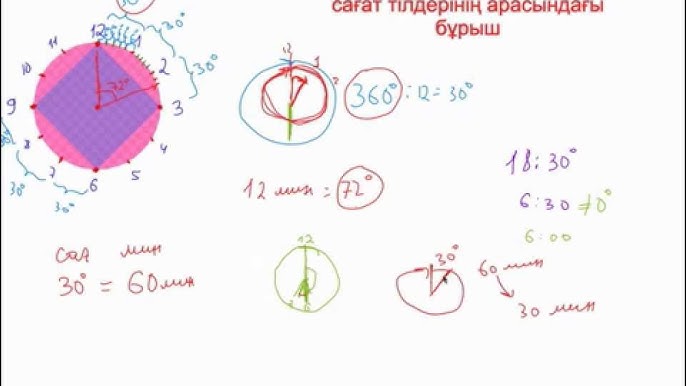 сағат тілдерінің арасындағы
бұрыш
30°
12
1
2
3
4
5
6
7
8
9
10
11
30°
30°
72°
30°
30°
12
1
2
360° : 12 = 30°
12 мин = 72°
18 : 30°
6 : 30 ≠ 0°
6 : 00
саг мин
30° = 60 мин
12
6
30°
60 мин
30 мин